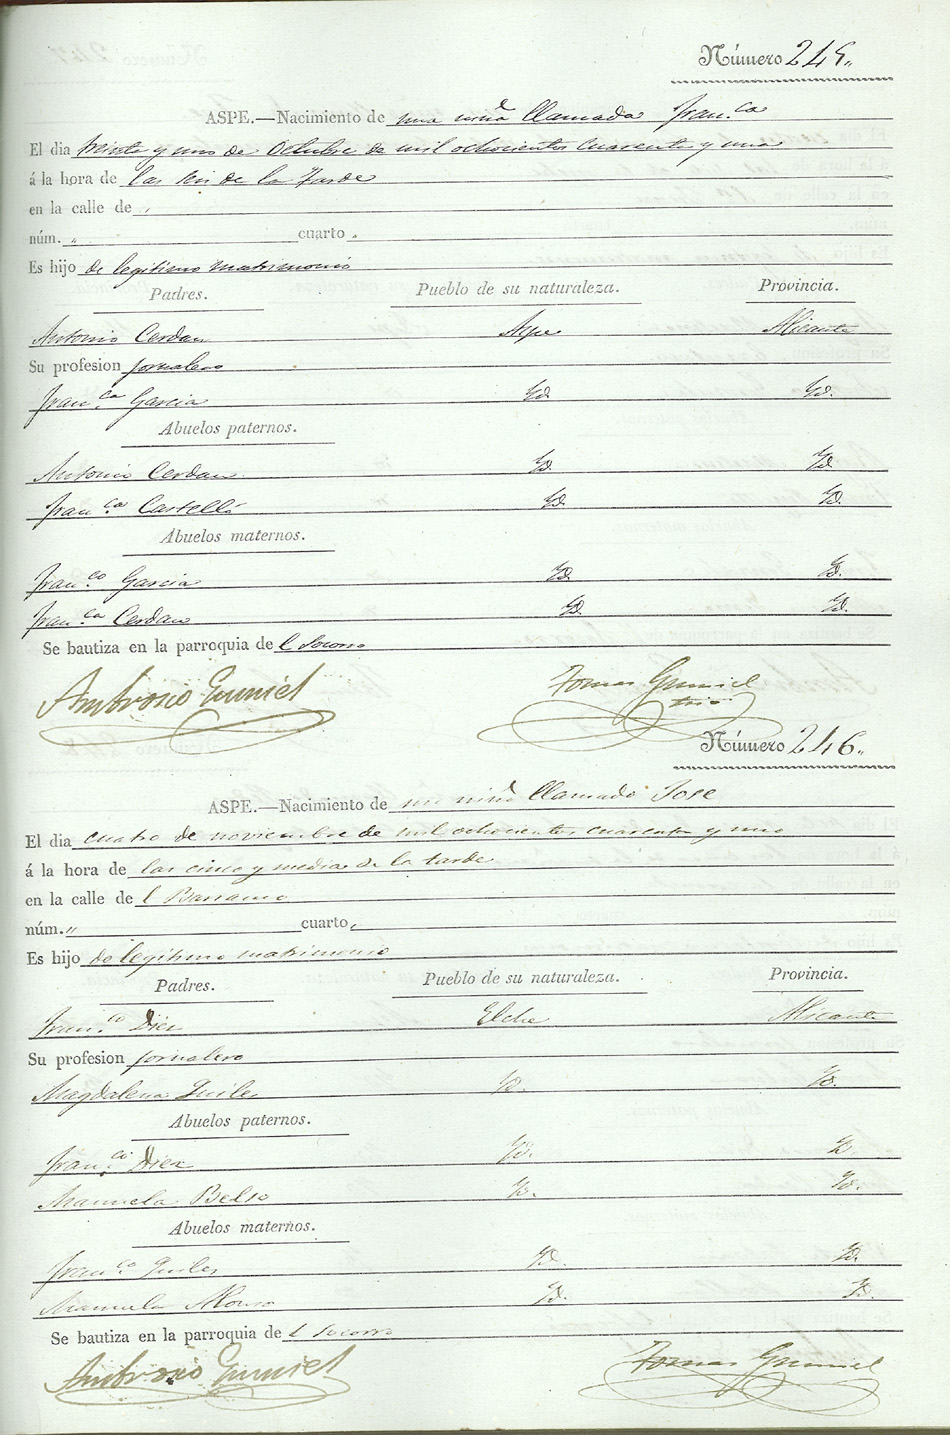 Número 245.
ASPE.—Nacimiento de una niña llamada Fran.ca
El dia treinta y uno de Octubre de mil ochocientos cuarenta y uno
á la hora de las seis de la tarde
en la calle de „
núm. „ cuarto „
Es hijo de legitimo matrimonio
Padres. Pueblo de su naturaleza. Provincia.
Antonio Cerdan Aspe Alicante
Su profesion jornalero
Fran.ca Garcia Yd. Yd.
Abuelos paternos.
Antonio Cerdan Yd. Yd.
Fran.ca Castelló Yd. Yd.
Abuelos maternos.
Fran.co Garcia Yd. Yd.
Fran.ca Cerdan Yd. Yd.
Se bautiza en la parroquia de l Socorro
Ambrosio Gumiel Tomas Gumiel
Número 246.
ASPE.—Nacimiento de un niño llamado Jose
El dia cuatro de noviembre de mil ochocientos cuarenta y uno
á la hora de las cinco y media de la tarde
en la calle de l Barranco
núm. „ cuarto „
Es hijo de legitimo matrimonio
Padres. Pueblo de su naturaleza. Provincia.
Fran.co Diez Elche Alicante
Su profesion jornalero
Magdalena Quiles Yd. Yd.
Abuelos paternos.
Fran.co Diez Yd. Yd.
Manuela Belso Yd. Yd.
Abuelos maternos.
Fran.co Quiles Yd. Yd.
Manuela Alonso Yd. Yd.
Se bautiza en la parroquia de l Socorro
Ambrosio Gumiel Tomas Gumiel